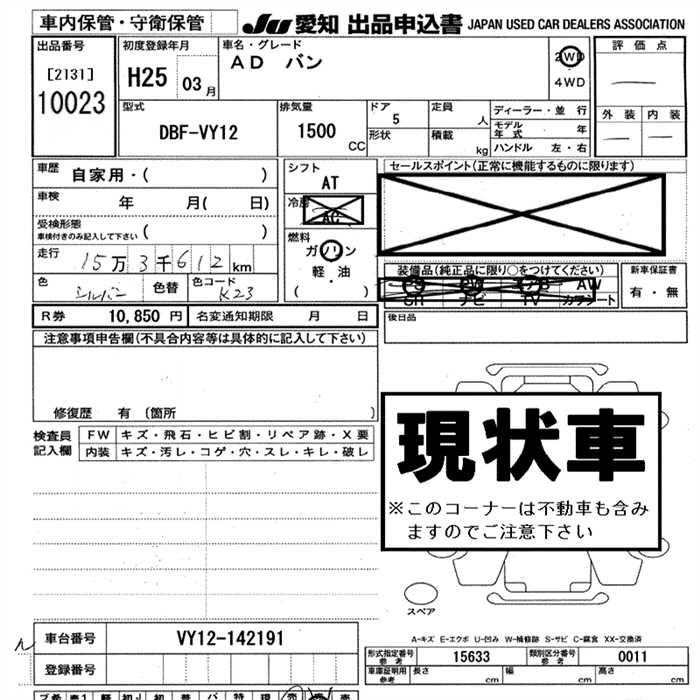 車内保管・守衛保管 JU 愛知 出品申込書 JAPAN USED CAR DEALERS ASSOCIATION
出品番号
[2131]
10023
初度登録年月
H25 03月
車名・グレード
AD バン
2WD
4WD
評価点
外装 内装
型式
DBF-VY12
排気量
1500
CC
ドア
5
形状
定員
人
積載
kg
ディーラー・並行
モデル年式 年
ハンドル 左・右
車歴
自家用・( )
車検
年 月( 日)
受検形態
車検付きのみ記入して下さい ( )
走行
15万3千612km
色
シルバー
色替
色コード
K23
シフト
AT
冷房
AC
燃料
ガソリン
軽・油
( )
セールスポイント(正常に機能するものに限ります)
装備品(純正品に限り○をつけてください)
PS PW AB AW
SR ナビ TV カラシート
新車保証書
有・無
R券 10,850円 名変通知期限 月 日
後日品
注意事項申告欄(不具合内容等は具体的に記入して下さい)
修復歴 有 〔箇所 〕
検査員記入欄
FW キズ・飛石・ヒビ割・リペア跡・X要
内装 キズ・汚レ・コゲ・穴・スレ・キレ・破レ
現状車
※このコーナーは不動車も含み
ますのでご注意下さい
スペア
A-キズ E-エクボ U-凹み W-補修跡 S-サビ C-腐食 XX-交換済
車台番号 VY12-142191
登録番号
形式指定番号
参考
15633
類別区分番号
参考
0011
車庫証明用
参考
長さ cm 幅 cm 高さ cm